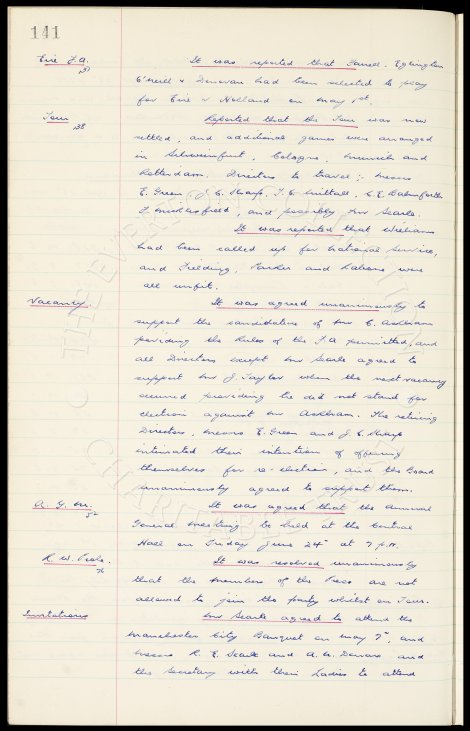 141
Eire F.A.
137
It was reported that Farrell, Eglington
O'Neill & Donovan had been selected to play
for Eire v Holland on May 1st.
Tour
138
Reported that the Tour was now
settled, and additional games were arranged
in Schweinfurt, Cologne, Munich and
Rotterdam. Directors to travel :- Messrs
E. Green, J. C. Sharp, T. C. Nuttall, C. E. Balmforth
F. Micklesfield, and possibly Mr Searle.
It was reported that Williams
had been called up for National Service,
and Fielding, Parker and were
all unfit.
Vacancy.
It was agreed unanimously to
support the candidature of Mr C. Askham
providing the Rules of the F.A permitted, and
all Directors except Mr Searle agreed to
support Mr J. Taylor when the next vacancy
occurred providing he did not stand for
election against Mr Askham. The retiring
Directors, Messrs E. Green and J. C. Sharp
intimated their intention of offering
themselves for re-election, and the Board
unanimously agreed to support them.
A. G. M.
It was agreed that the Annual
General Meeting be held at the Central
Hall on Friday June 24th at 7 p.m.
R. W.
76
It was resolved unanimously
that the members of the Press are not
allowed to join the party whilst on Tour.
Invitations
Mr Searle agreed to attend the
Manchester City Banquet on May 7th, and
Messrs R. E. Searle and A. W. and
the Secretary with their Ladies to attend
THE EVERTON